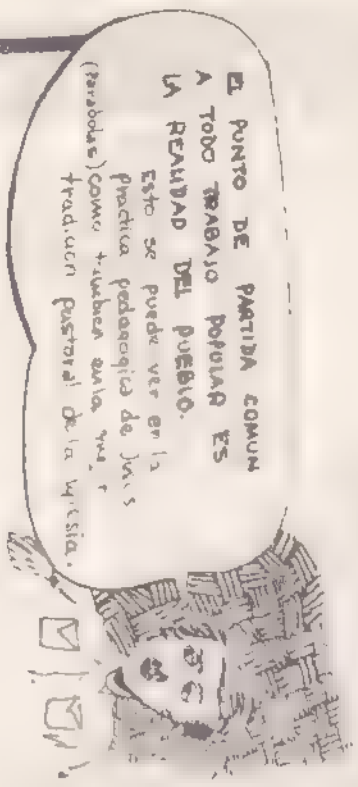 EL PUNTO DE PARTIDA COMUN
A TODO TRABAJO POPULAR ES
LA REALIDAD DEL PUEBLO.
Esto se puede ver en la
practica pedagogica de Jesus
(Parabolas) como tambien en la
tradicion pastoral de la iglesia.